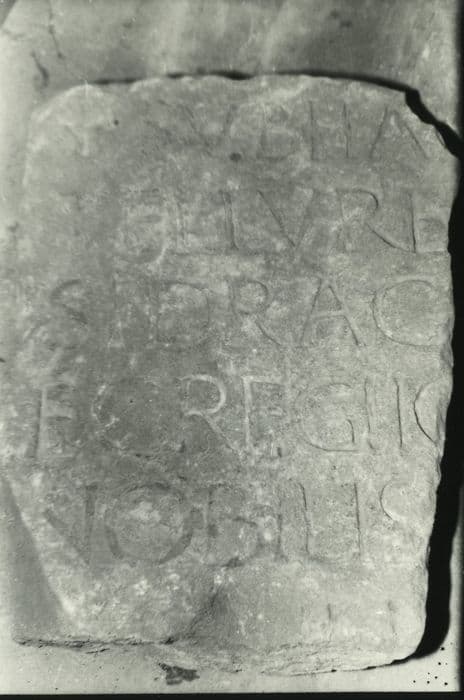 VBHA
TELLVRE
S DRAC
EGREGII
NOBILIS